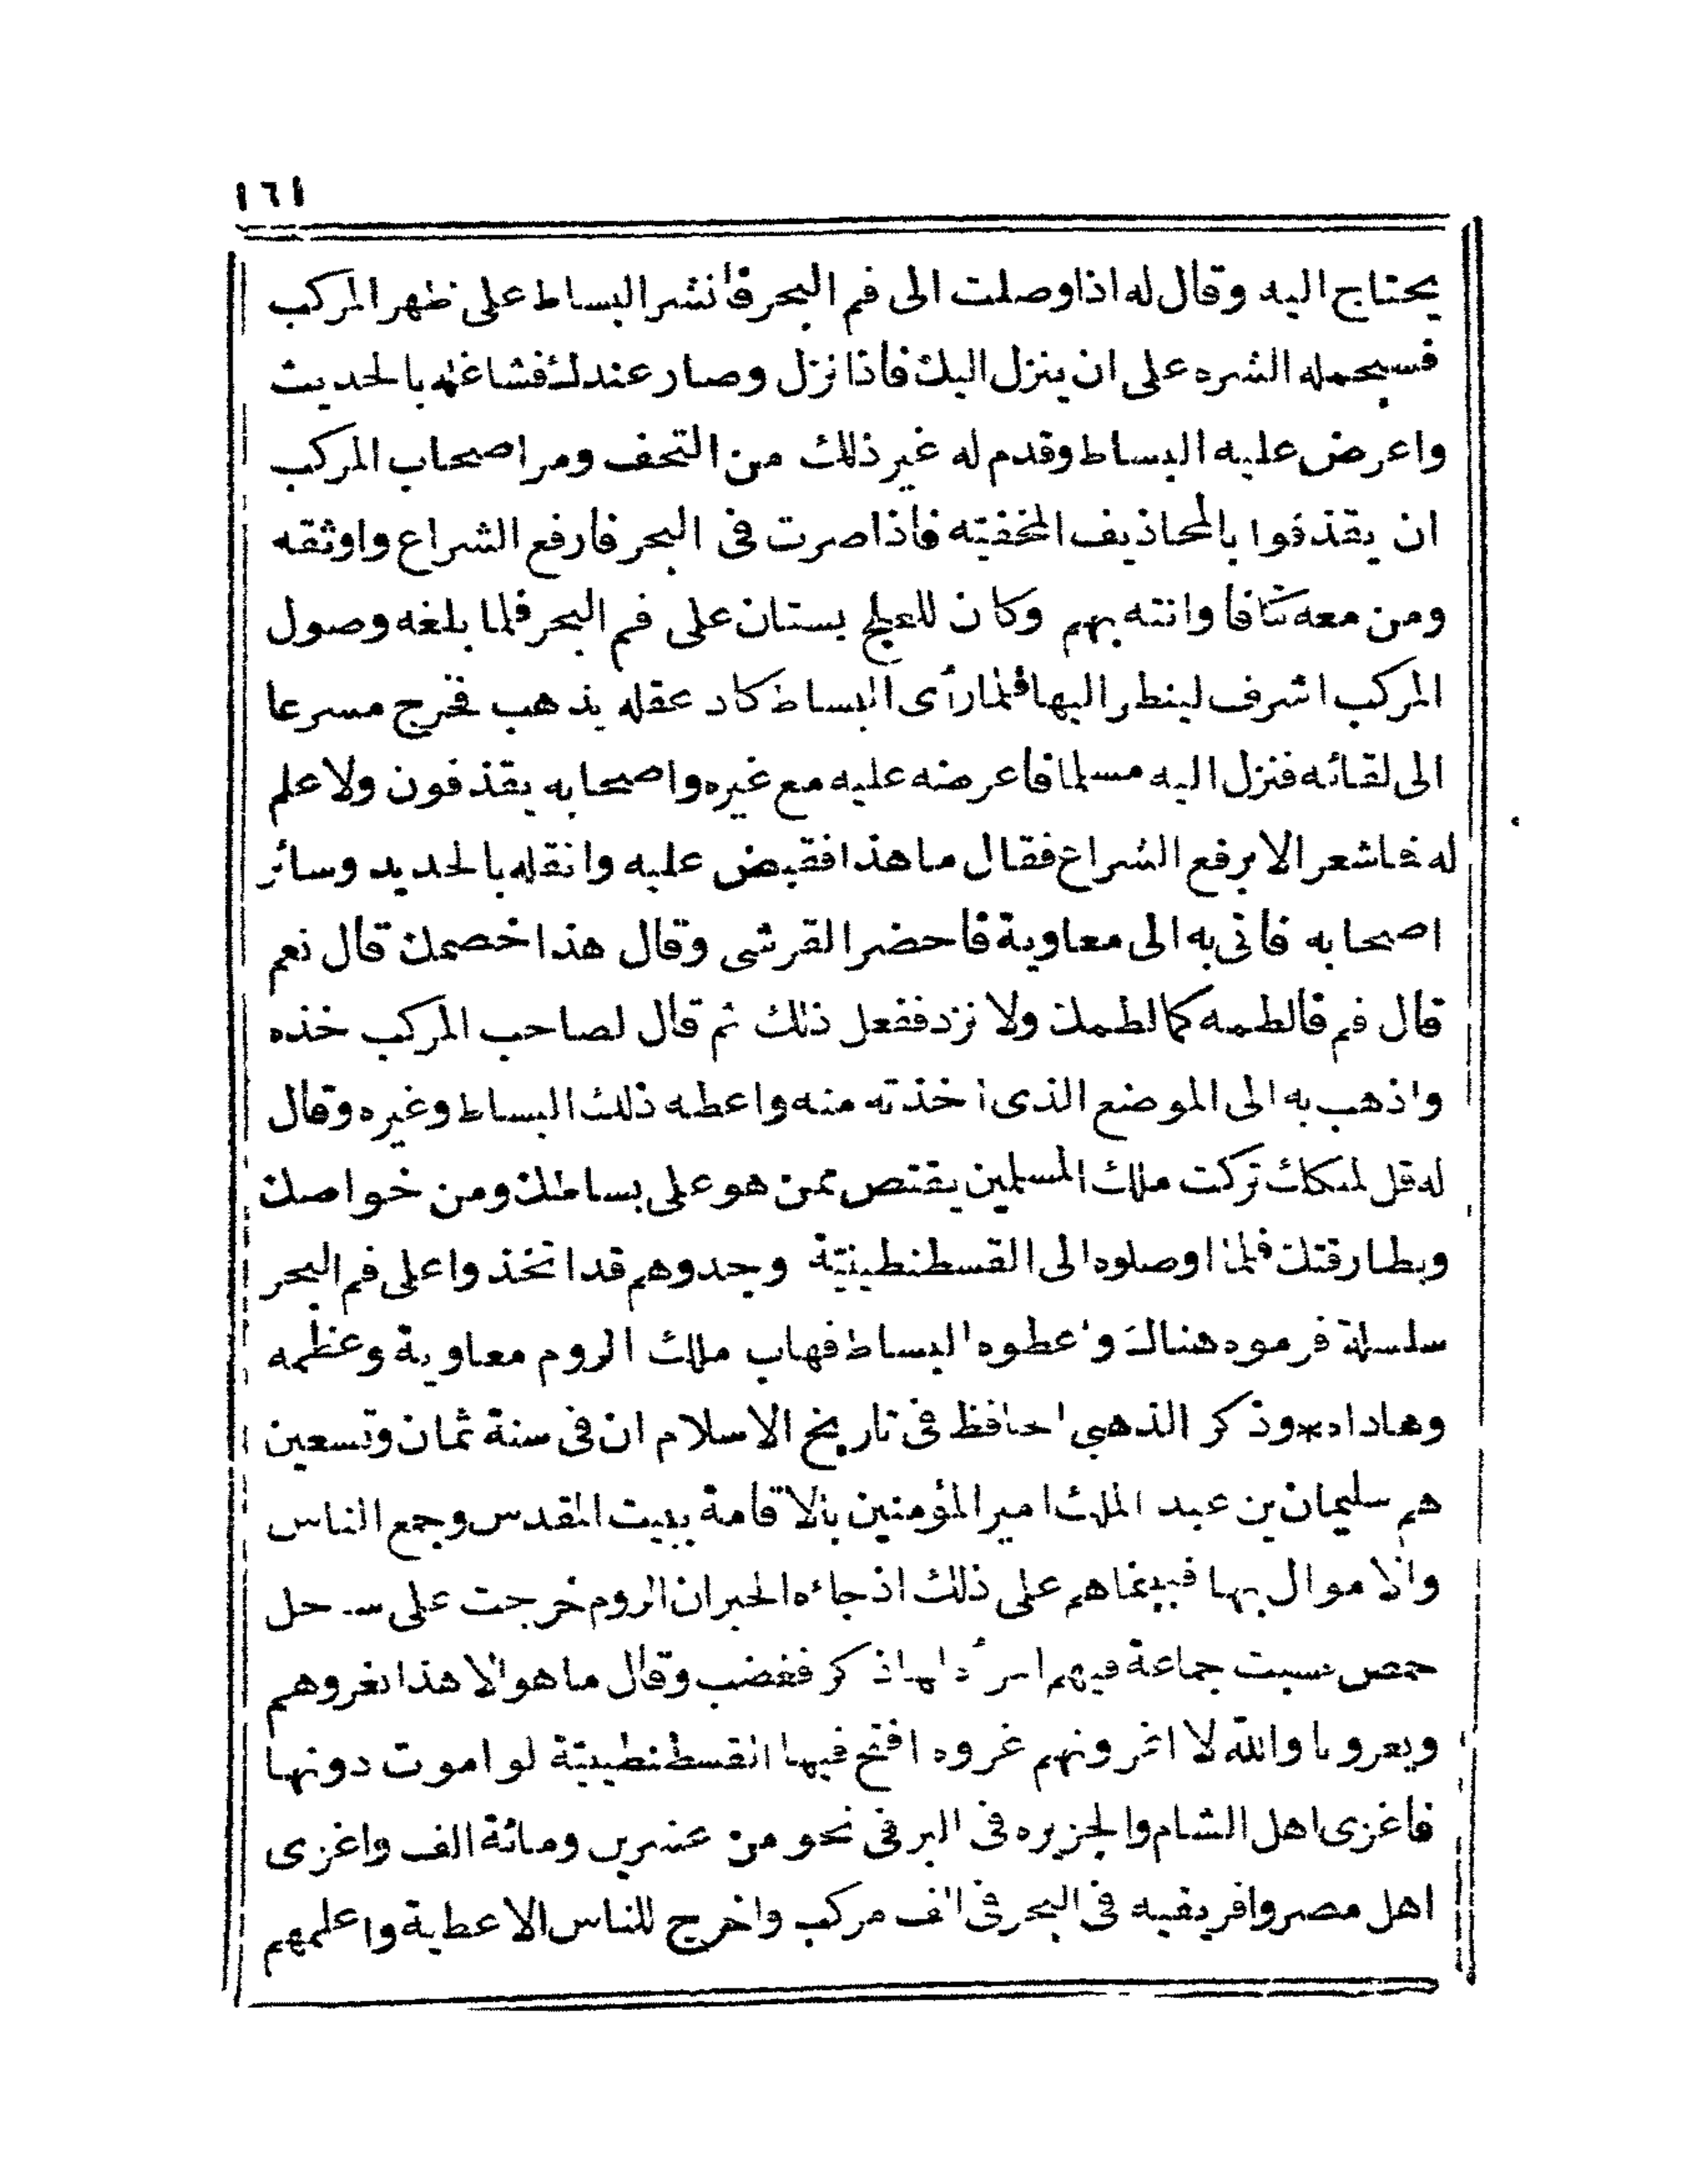 ١٦١
يحتاج اليه وقال له اذا وصلت الى فم البحر فانشر البساط على ظهر المركب
فسيحمله الشره على ان ينزل اليك فاذا نزل وصار عندك فشاغله بالحديث
واعرض عليه البساط وقدم له غير ذلك من التحف ومر اصحاب المركب
ان يقذفوا بالمحاذيف المخفيّه فاذا صرت فى البحر فارفع الشراع واوثقه
ومن معه كتافا وائته بهم وكان للعلج بستان على فم البحر فلما بلغه وصول
المركب اشرف لينظر اليها فلما رأى البساط كاد عقله يذهب فخرج مسرعا
الى لقائه فنزل اليه مسلما فاعرضه عليه مع غيره واصحابه يقذفون ولا علم
له فما شعر الا برفع الشراع فقال ما هذا فقبض عليه واثقله بالحديد وسائر
اصحابه فاتى به الى معاوية فاحضر القرشى وقال هذا خصمك قال نعم
قال قم فالطمه كما لطمك ولا تزد ففعل ذلك ثم قال لصاحب المركب خذه
واذهب به الى الموضع الذى اخذته منه واعطه ذلك البساط وغيره وقال
له قل لملكك تركت ملك المسلمين يقتص ممن هو على بساطك ومن خواصك
وبطارقتك فلما اوصلوه الى القسطنطينيّة وجدوهم قد اتخذوا على فم البحر
سلسلة فرموه هناك واعطوه البساط فهاب ملك الروم معاوية وعظمه
وهاداه * وذكر الذهبى الحافظ فى تاريخ الاسلام ان فى سنة ثمان وتسعين
هم سليمان بن عبد الملك امير المؤمنين بالاقامة ببيت المقدس وجمع الناس
والاموال بها فبينما هم على ذلك اذ جاءه الخبر ان الروم خرجت على ساحل
حمص فسبت جماعة فيهم امرأة لها ذكر فغضب وقال ما هو الا هذا نغزوهم
ويغزونا والله لا اغزونهم غزوه افتح فيها القسطنطينيّة او اموت دونها
فاغزى اهل الشام والجزيره فى البر فى نحو من عشرين ومائة الف واغزى
اهل مصر وافريقيه فى البحر فى الف مركب واخرج للناس الاعطية واعلمهم